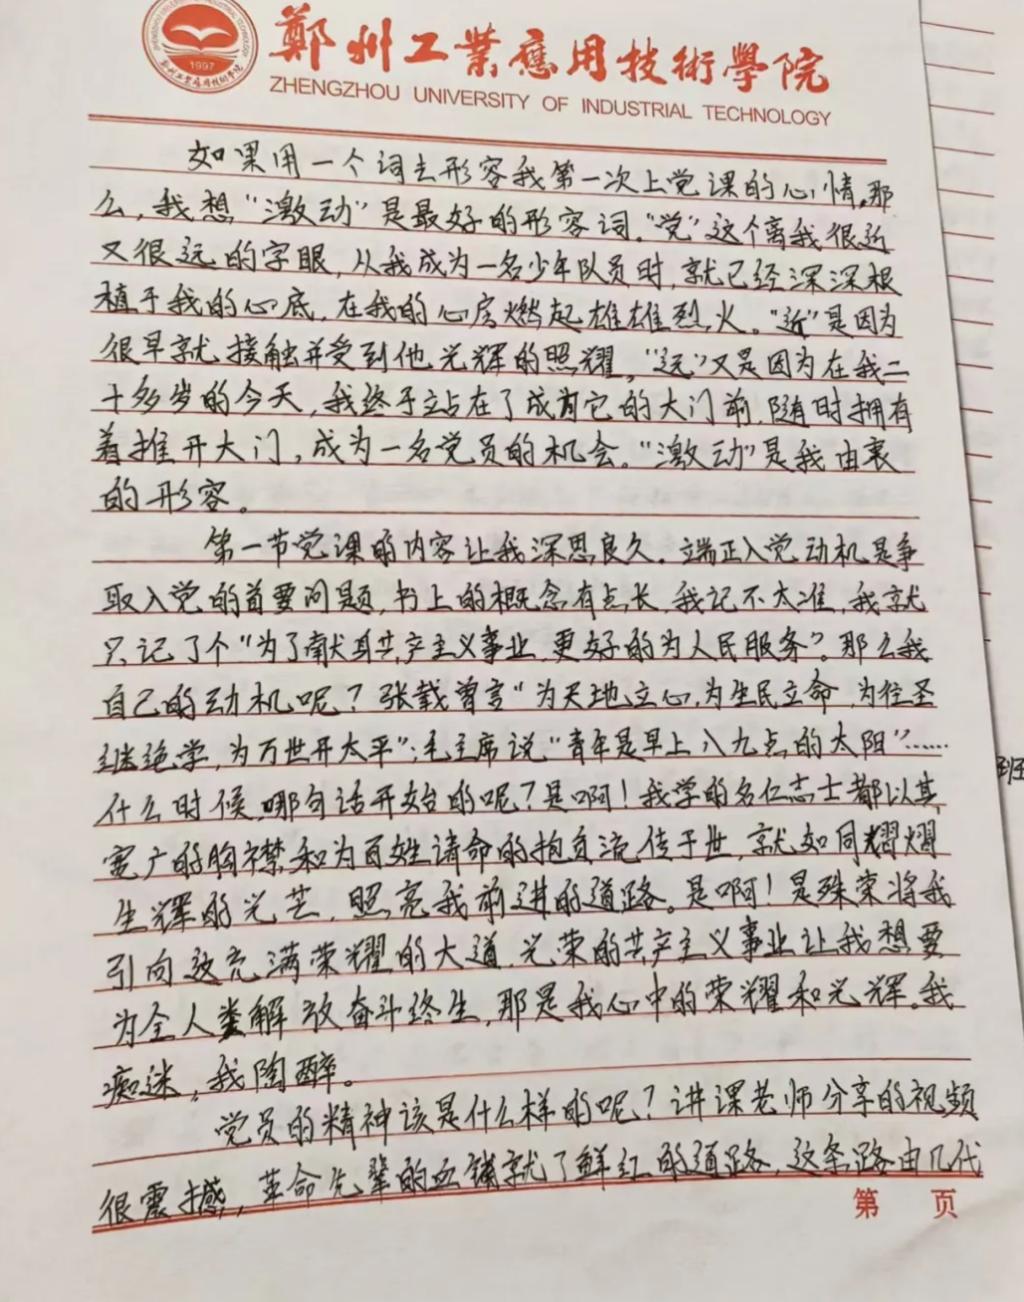 1997
鄭州工業應用技術學院
ZHENGZHOU UNIVERSITY OF INDUSTRIAL TECHNOLOGY
如果用一个词去形容我第一次上党课的心情,那
么,我想“激动”是最好的形容词。“党”这个离我很近
又很远的字眼,从我成为一名少年队员时,就已经深深根
植于我的心底,在我的心房燃起雄雄烈火。“近”是因为
很早就接触并受到他光辉的照耀,“远”又是因为在我二
十多岁的今天,我终于站在了成为它的大门前,随时拥有
着推开大门,成为一名党员的机会。“激动”是我由衷
的形容。
第一节党课的内容让我深思良久。端正入党动机是争
取入党的首要问题,书上的概念有点长,我记不太准,我就
只记了个“为了献身共产主义事业,更好的为人民服务”。那么我
自己的动机呢?张载曾言“为天地立心,为生民立命,为往圣
继绝学,为万世开太平”;毛主席说“青年是早上八九点的太阳”……
什么时候,哪句话开始的呢?是啊!我学的名仁志士都以其
宽广的胸襟和为百姓请命的抱负流传于世,就如同熠熠
生辉的光芒,照亮我前进的道路。是啊!是殊荣将我
引向这充满荣耀的大道,光荣的共产主义事业让我想要
为全人类解放奋斗终生,那是我心中的荣耀和光辉。我
痴迷,我陶醉。
党员的精神该是什么样的呢?讲课老师分享的视频
很震撼,革命先辈的血铺就了鲜红的道路,这条路由几代
第 页
班